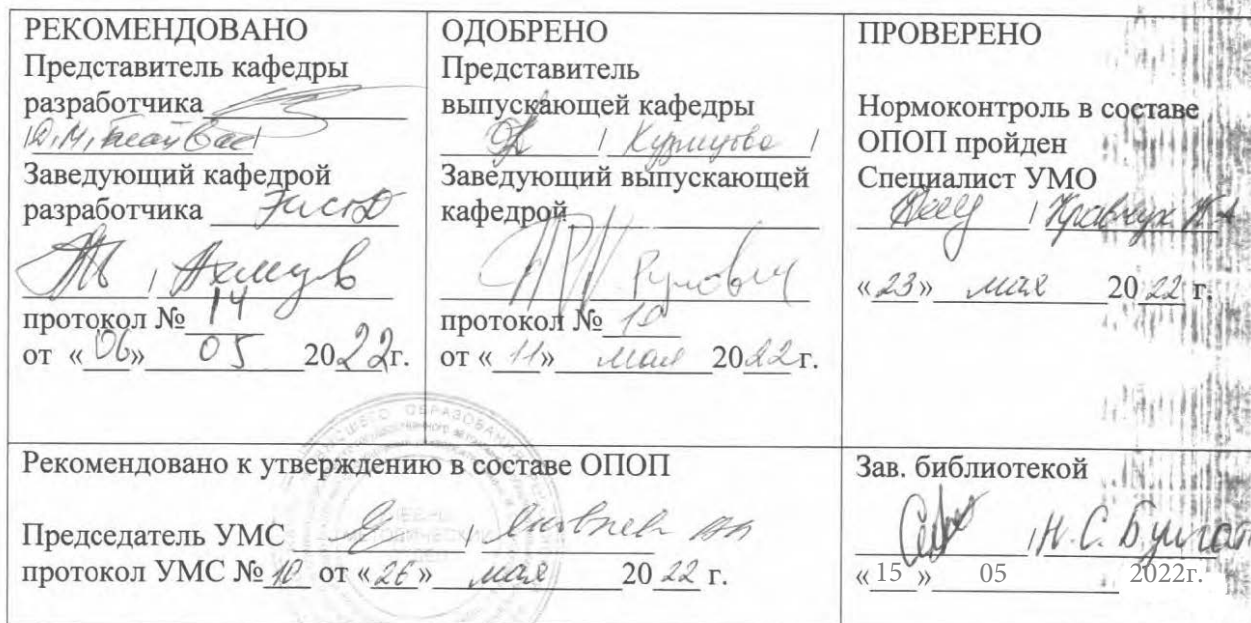 РЕКОМЕНДОВАНО
Представитель кафедры
разработчика
Заведующий кафедрой
разработчика
протокол № 14
от «06» 05 2022г.
ОДОБРЕНО
Представитель
выпускающей кафедры
Заведующий выпускающей
кафедрой
протокол № 10
от «11» мая 2022г.
ПРОВЕРЕНО
Нормоконтроль в составе
ОПОП пройден
Специалист УМО
/ Кравчук
«23» мая 2022 г.
Рекомендовано к утверждению в составе ОПОП
Председатель УМС
протокол УМС № 10 от «26» мая 2022 г.
Зав. библиотекой
/Н.С.
«15» 05 2022г.